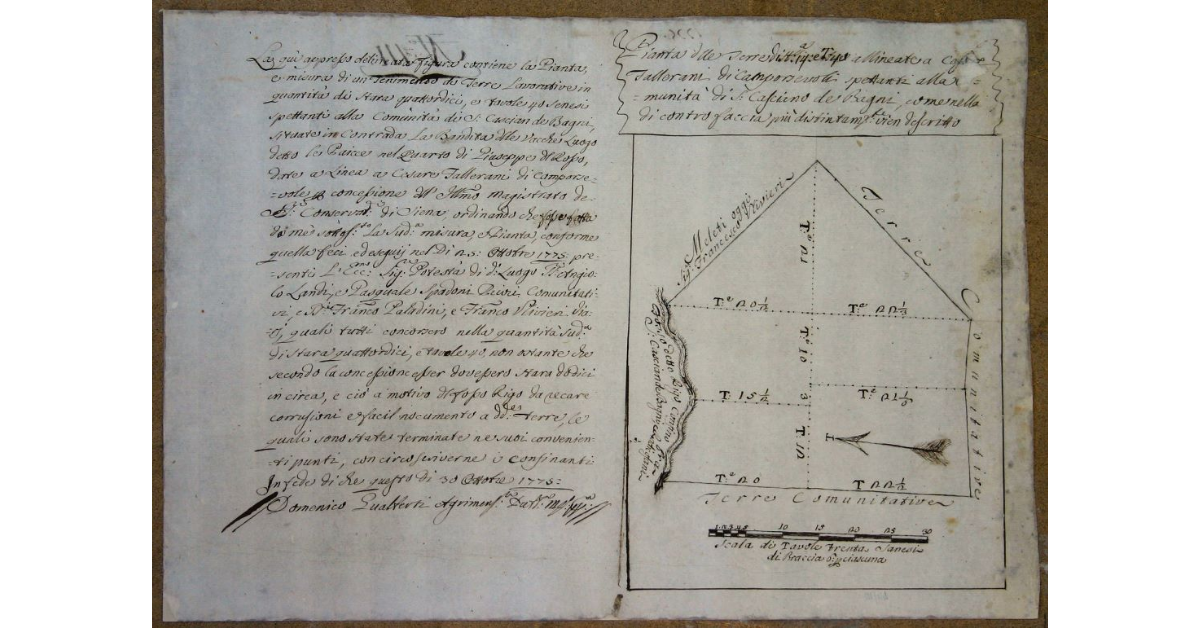 La qui appresso delineata figura contiene la Pianta,
e misura di un Tenimento di Terre Lavorative in
quantità di Stara quattordici, e tavole 40 Senesi
spettanti alla Comunità di S. Casciano de Bagni,
situate in Contrada La Bandita delle Vacche Luogo
detto le Paicce nel Quarto di Giuseppe
date a Linea a Cesare Tallorani di Camporse-
vole p concessione dell' Illmo Magistrato de
SS:ri Conservat:ri di Siena, ordinando che fosse fatta
da me sottos:to la Sud:a misura, e Pianta, conforme
quella feci, ed eseguij nel Dì 25: Ottobre 1775: pre-
senti L'Ecc:mo Sig:r Potestà di d:o Luogo Angio-
lo Landi, e Pasquale Spadoni Comunitati-
vi, e Franc:o Paladini, e Franc:o Vivieri
quali tutti concorsero nella quantità Sud:a
di Stara quattordici, e tavole 40, non ostante che
secondo la concessione esser dovessero Stara dodici
in circa, e ciò a motivo del fosso Rigo da recare
corrusioni e facil nocumento a dd:e terre, le
quali sono state terminate ne suoi convenien-
ti punti, con circoscriverne i Confinanti
In fede di che questo dì 30 Ottobre 1775:
Domenico Gualterti Agrimens:re
Pianta delle Terre allineate a
Tallorani di Camporsevoli spettanti alla
munità di S. Casciano de Bagni, come nella
di contro faccia più distintam:e vien descritto
Meleti oggi
Sig: Francesco Vivieri
Terre Comunitative
T:e 21
T:e 20 1/2
T:e 22 1/2
T:e 10
T: 15 1/4
T:e 21 1/2
T: 12
T:e 20
T: 22 1/2
Fosso detto Rigo
S: Casciano de Bagni
Terre Comunitative
1 2 3 4 5 10 15 20 25 30
Scala di Tavole Trenta Sanesi
di Braccia ciascuna